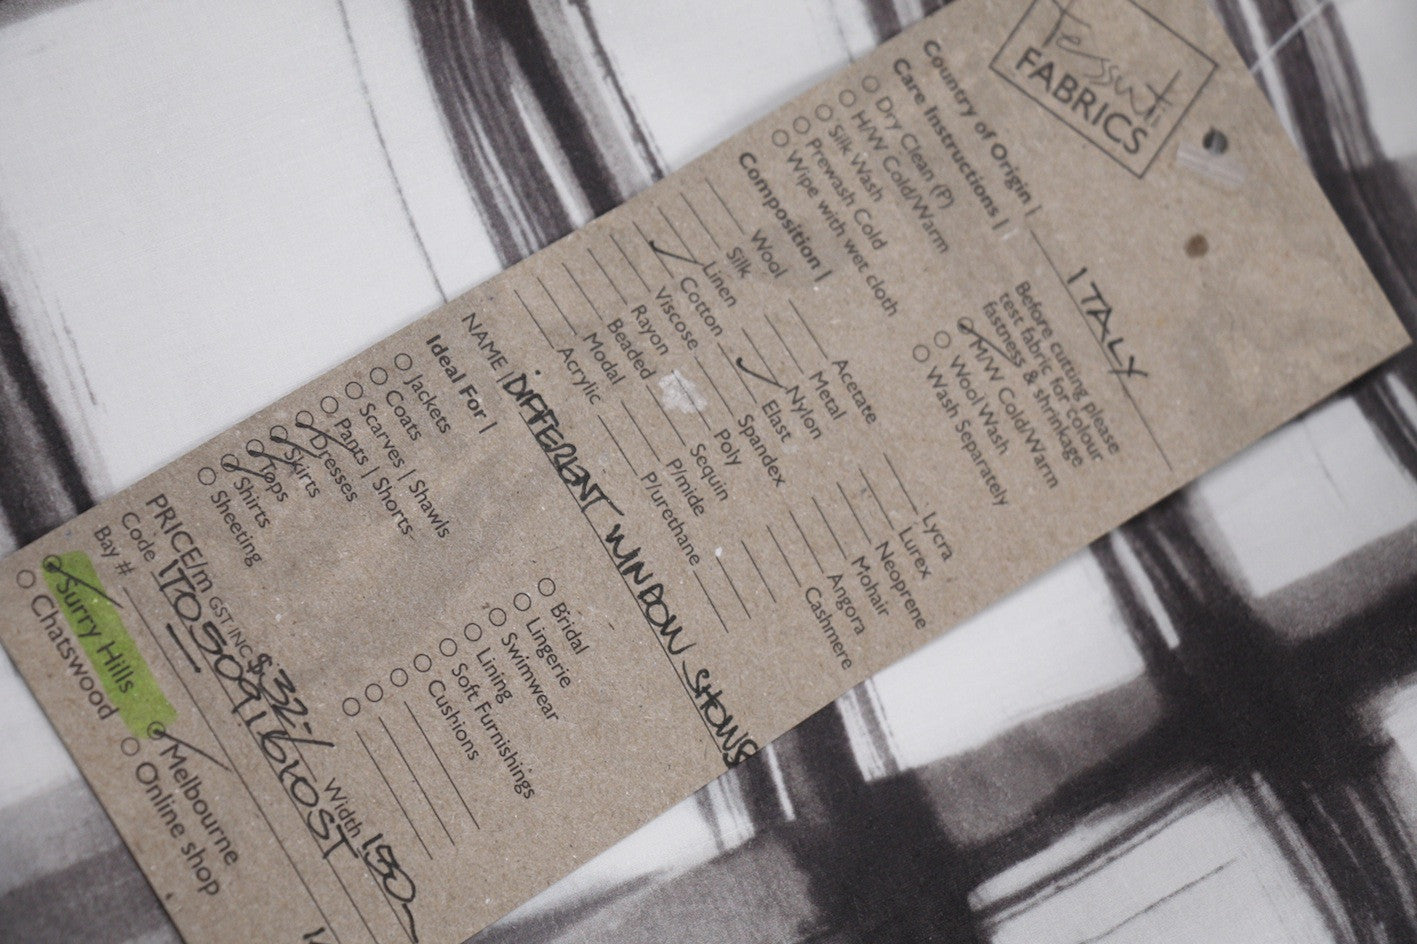 Tessuti
FABRICS
Country of Origin | ITALY
Care Instructions |
Before cutting please
test fabric for colour
fastness & shrinkage
Dry Clean (P)
H/W Cold/Warm
Silk Wash
Prewash Cold
Wipe with wet cloth
M/W Cold/Warm
Wool Wash
Wash Separately
Composition |
Wool
Silk
Linen
Cotton
Viscose
Rayon
Beaded
Modal
Acrylic
Acetate
Metal
Nylon
Elast
Spandex
Poly
Sequin
P/mide
P/urethane
Lycra
Lurex
Neoprene
Mohair
Angora
Cashmere
NAME | DIFFERENT WINDOW SHOWS
Ideal For |
Jackets
Coats
Scarves | Shawls
Pants | Shorts
Dresses
Skirts
Tops
Shirts
Sheeting
Bridal
Lingerie
Swimwear
Lining
Soft Furnishings
Cushions
PRICE/m GST INC $32- Width 150
Code
Bay #
Surry Hills
Chatswood
Melbourne
Online shop